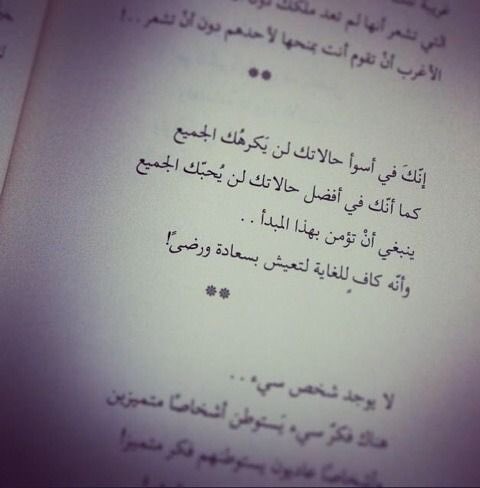 التي تشعر أنها لم تعد ملكك دون
الأغرب أنْ تقوم أنت بمنحها لأحدهم دون أنْ تشعر..!
**
إنّكَ في أسوأ حالاتك لن يَكرهُك الجميع
كما أنّك في أفضل حالاتك لن يُحبّك الجميع
ينبغي أنْ تؤمن بهذا المبدأ..
وأنّه كافٍ للغاية لتعيش بسعادة ورضىً!
**
لا يوجد شخص سيء..
هناك فكرٌ سيء يَستوطن أشخاصًا متميزين
وأشخاصًا عاديون يستوطنهم فكر متميز!